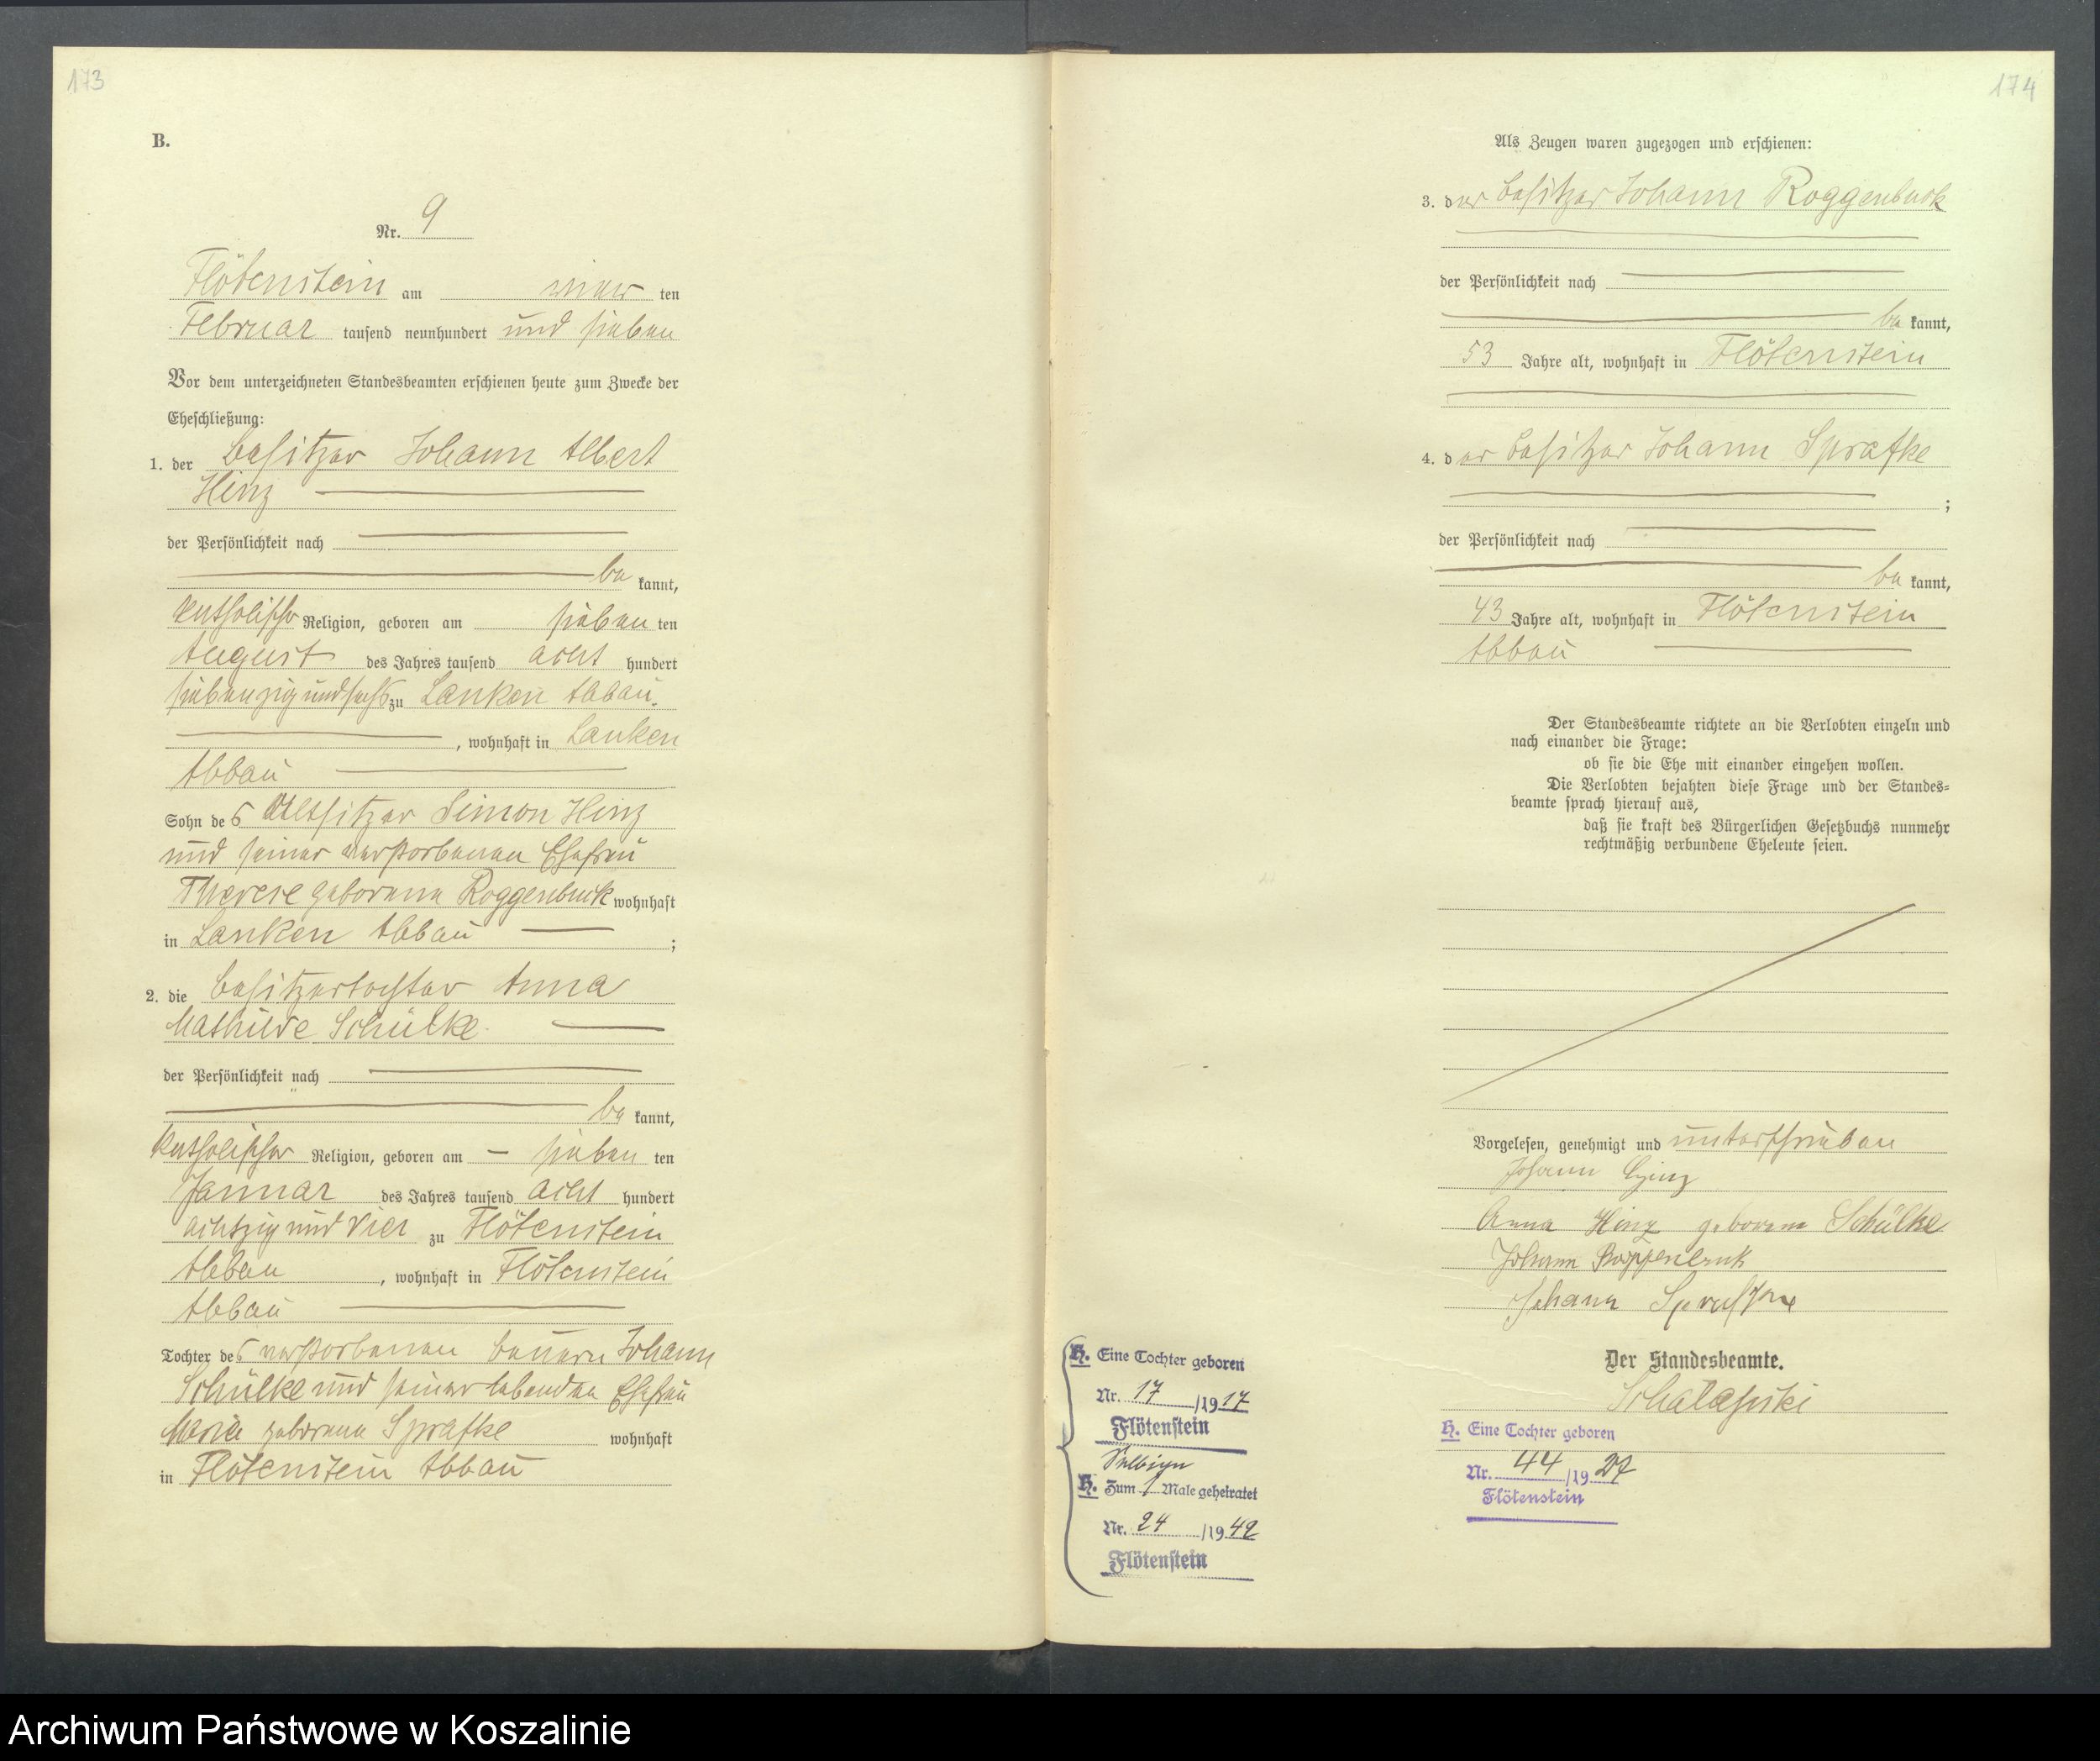 173
B.
Nr. 9
Flötenstein am vier ten
Februar tausend neunhundert und sieben
Vor dem unterzeichneten Standesbeamten erschienen heute zum Zwecke der
Eheschließung:
1. der Besitzer Johann Albert
Hinz
der Persönlichkeit nach
be kannt,
katholischer Religion, geboren am sieben ten
August des Jahres tausend acht hundert
siebenzig und sechs zu Lanken Abbau
, wohnhaft in Lanken
Abbau
Sohn des Altsitzer Simon Hinz
und seiner verstorbenen Ehefrau
Therese geborene Roggenbuck wohnhaft
in Lanken Abbau ;
2. die Besitzertochter Anna
Mathilde Schülke
der Persönlichkeit nach
be kannt,
katholischer Religion, geboren am – sieben ten
Januar des Jahres tausend acht hundert
achtzig und vier zu Flötenstein
Abbau , wohnhaft in Flötenstein
Abbau
Tochter des verstorbenen Bauern Johann
Schülke und seiner lebenden Ehefrau
Maria geborene Spratke wohnhaft
in Flötenstein Abbau
174
Als Zeugen waren zugezogen und erschienen:
3. der Besitzer Johann Roggenbuck
der Persönlichkeit nach
be kannt,
53 Jahre alt, wohnhaft in Flötenstein
4. der Besitzer Johann Spratke
;
der Persönlichkeit nach
be kannt,
43 Jahre alt, wohnhaft in Flötenstein
Abbau
Der Standesbeamte richtete an die Verlobten einzeln und
nach einander die Frage:
ob sie die Ehe mit einander eingehen wollen.
Die Verlobten bejahten diese Frage und der Standes-
beamte sprach hierauf aus,
daß sie kraft des Bürgerlichen Gesetzbuchs nunmehr
rechtmäßig verbundene Eheleute seien.
Vorgelesen, genehmigt und unterschrieben
Johann Hinz
Anna Hinz geborene Schülke
Johann Roggenbuck
Johann Spratke
Der Standesbeamte.
H. Eine Tochter geboren
Nr. 17/1917
Flötenstein
Selbige
H. Zum 1 Male geheiratet
Nr. 24/1942
Flötenstein
H. Eine Tochter geboren
Nr. 44/1927
Flötenstein
Archiwum Państwowe w Koszalinie